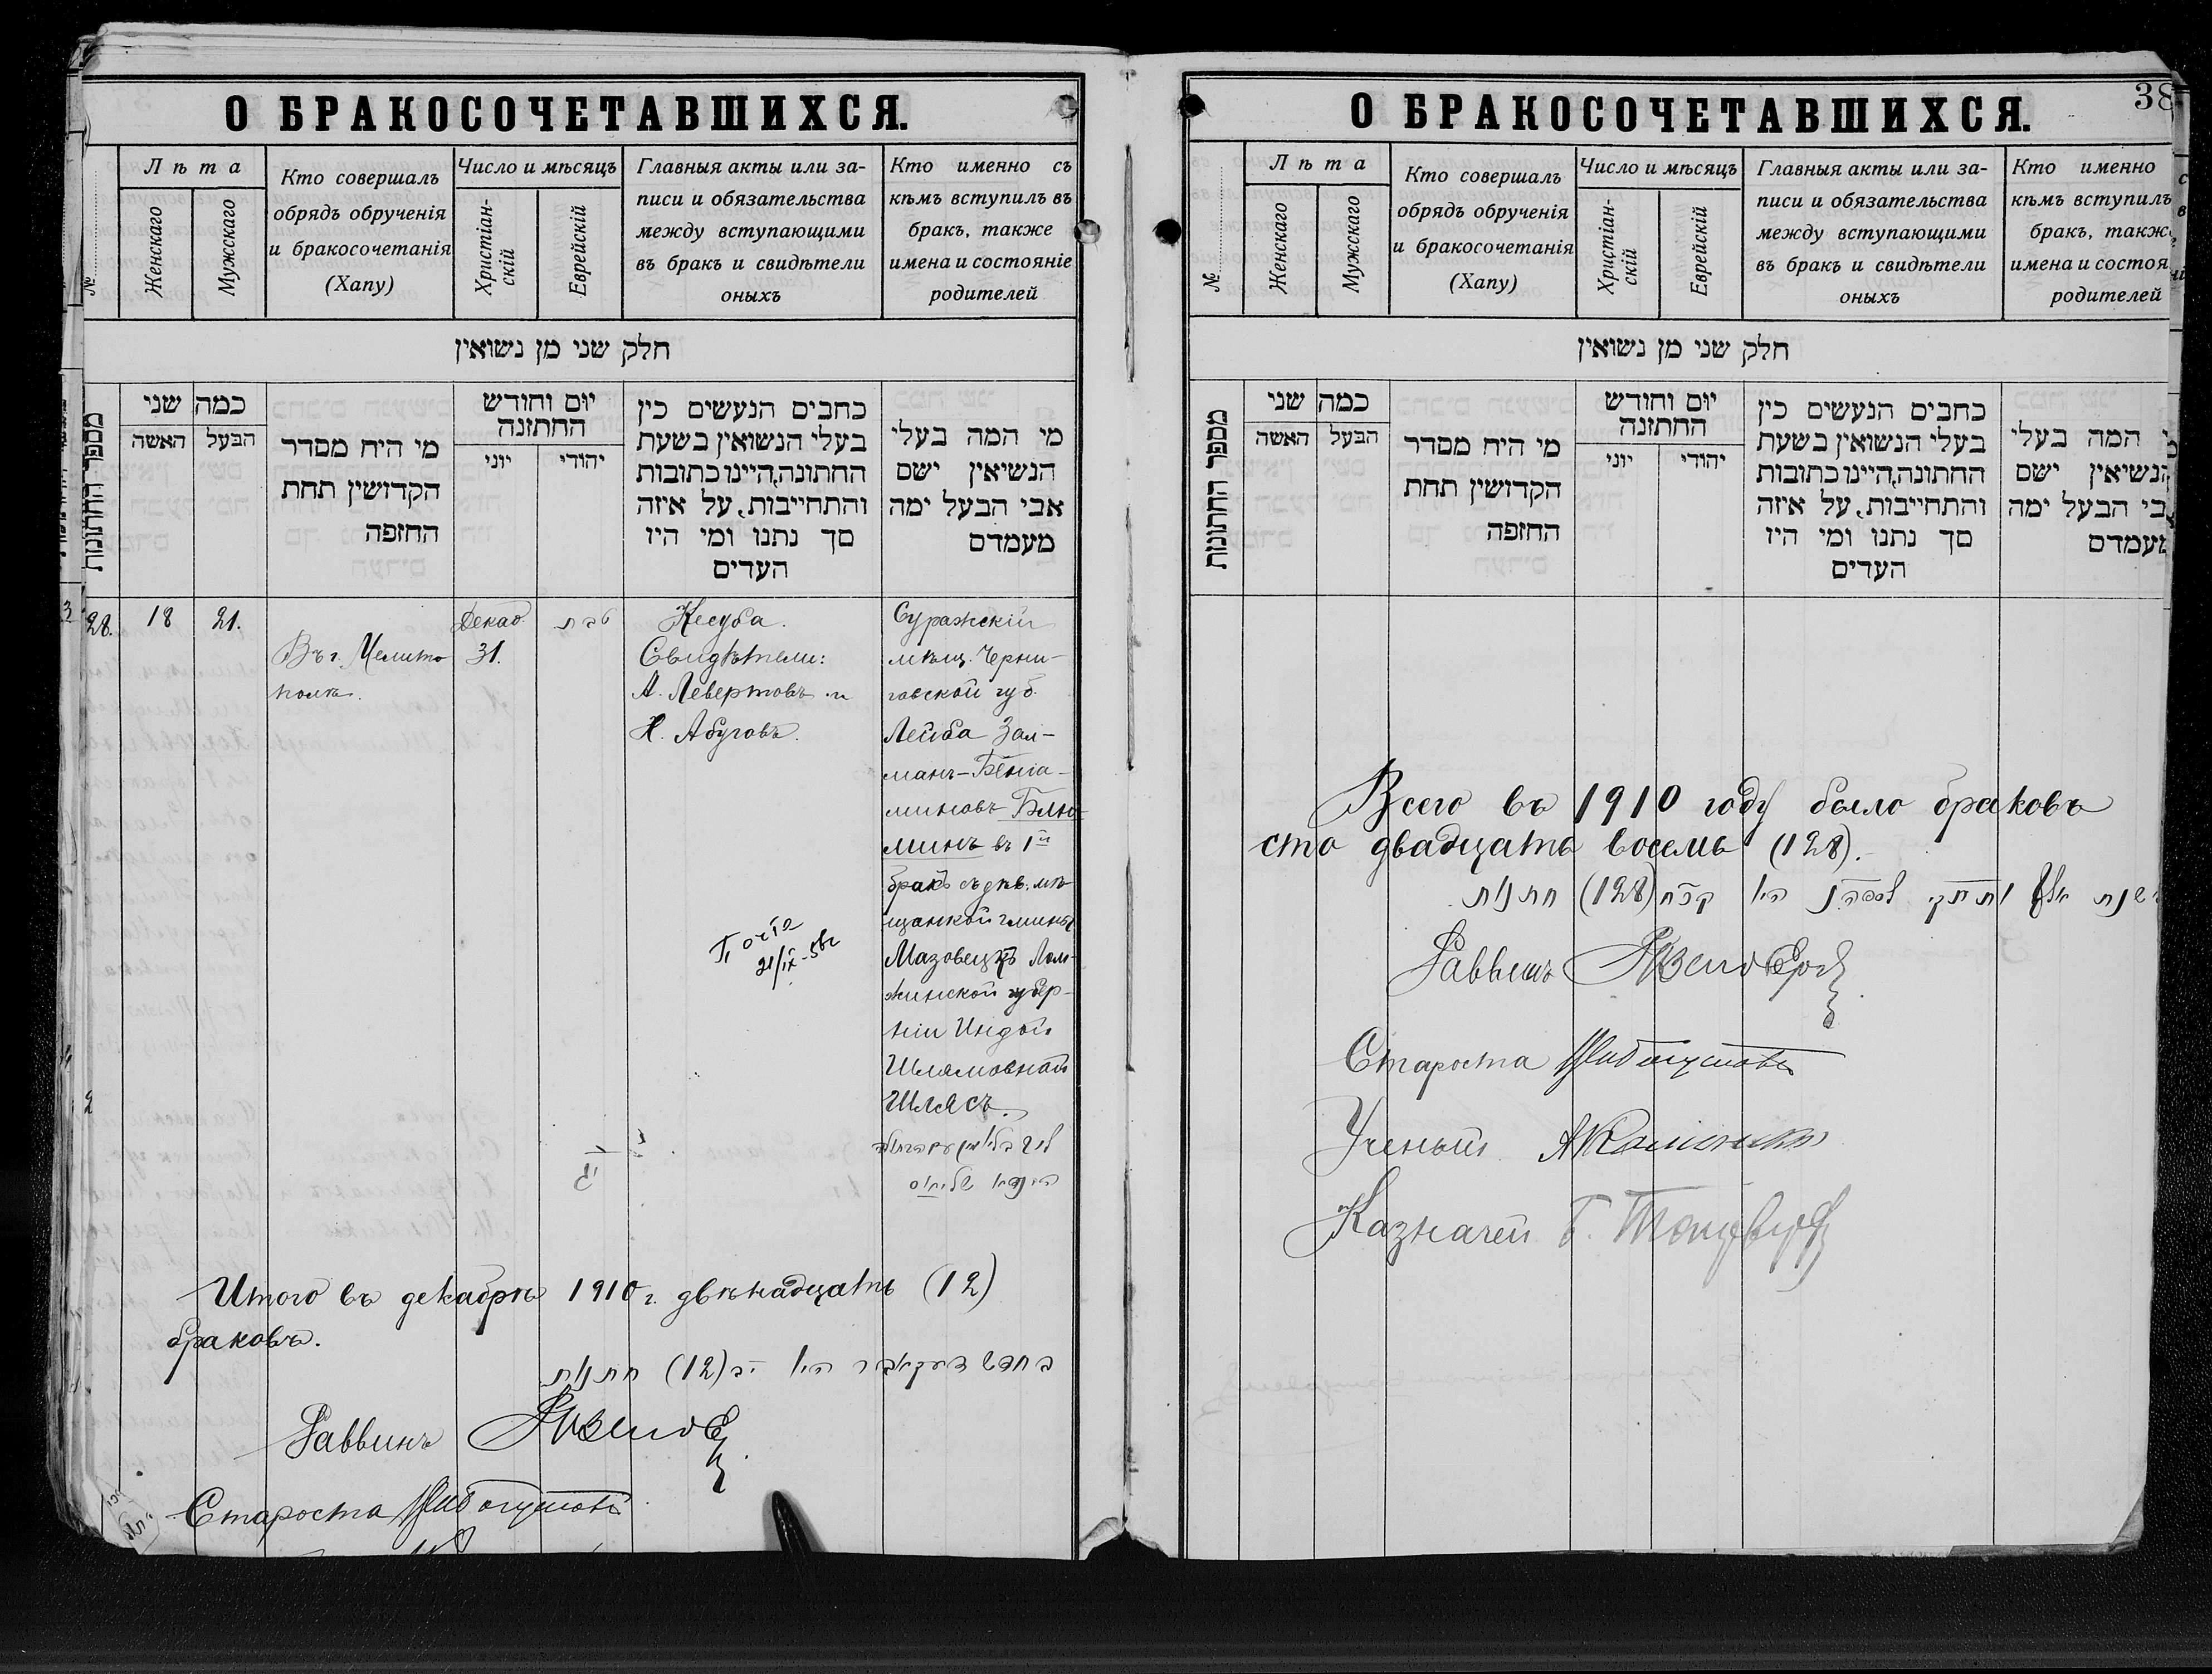 О БРАКОСОЧЕТАВШИХСЯ.
№
Лѣта
Женскаго
Мужскаго
Кто совершалъ
обрядъ обрученія
и бракосочетанія
(Хапу)
Число и мѣсяцъ
Христіан-
скій
Еврейскій
Главныя акты или за-
писи и обязательства
между вступающими
въ бракъ и свидѣтели
оныхъ
Кто именно съ
кѣмъ вступилъ въ
бракъ, также
имена и состояніе
родителей
חלק שני מן נשואין
מספר החתונות
כמה שני
האשה
הבעל
מי היח מסדר
הקדושין תחת
החופה
יום וחודש
החתונה
יוני
יהודי
כחבים הנעשים כין
בעלי הנשואין בשעת
החתונה,היינו כתובות
והתחייבות, על איזה
סך נתנו ומי היו
העדים
מי המה בעלי
הנשיאין ישם
אבי הבעל ימה
מעמדם
28.
18
21.
Въ г. Мелито
полѣ.
Декаб
31.
טבת
Кесуба.
Свидѣтели:
А. Левертовъ и
Х. Абуговъ.
Суражскій
мѣщ. Черни-
говской губ.
Лейба Зал-
манъ-Бенiа-
миновъ Блю-
минъ въ 1й
бракъ съ дѣв. мѣ-
щанкой гмины
Мазовецкъ Лом-
жинской губер-
ніи Индой
Шлемовной
Шлясъ.
21/IX-58г
Итого въ декабрѣ 1910 г. двѣнадцать (12)
браковъ.
בחדש דעקאבר היו יב (12) חתונות
Раввинъ
Староста
О БРАКОСОЧЕТАВШИХСЯ.
38
№
Лѣта
Женскаго
Мужскаго
Кто совершалъ
обрядъ обрученія
и бракосочетанія
(Хапу)
Число и мѣсяцъ
Христіан-
скій
Еврейскій
Главныя акты или за-
писи и обязательства
между вступающими
въ бракъ и свидѣтели
оныхъ
Кто именно
кѣмъ вступилъ
бракъ, также
имена и состоя
родителей
חלק שני מן נשואין
מספר החתונות
כמה שני
האשה
הבעל
מי היח מסדר
הקדושין תחת
החופה
יום וחודש
החתונה
יוני
יהודי
כחבים הנעשים כין
בעלי הנשואין בשעת
החתונה,היינו כתובות
והתחייבות, על איזה
סך נתנו ומי היו
העדים
המה בעלי
הנשיאין ישם
אבי הבעל ימה
מעמדם
Всего въ 1910 году было браковъ
сто двадцать восемь (128).
בשנת אלף ותתקי למספרם היו קכח (128) חתונות
Раввинъ
Староста
Ученый
Казначей Б.